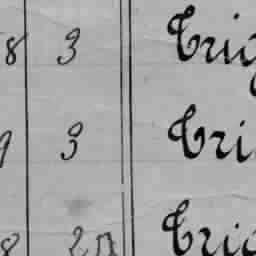 8 3 Trig
9 3 Tri
8 Trig